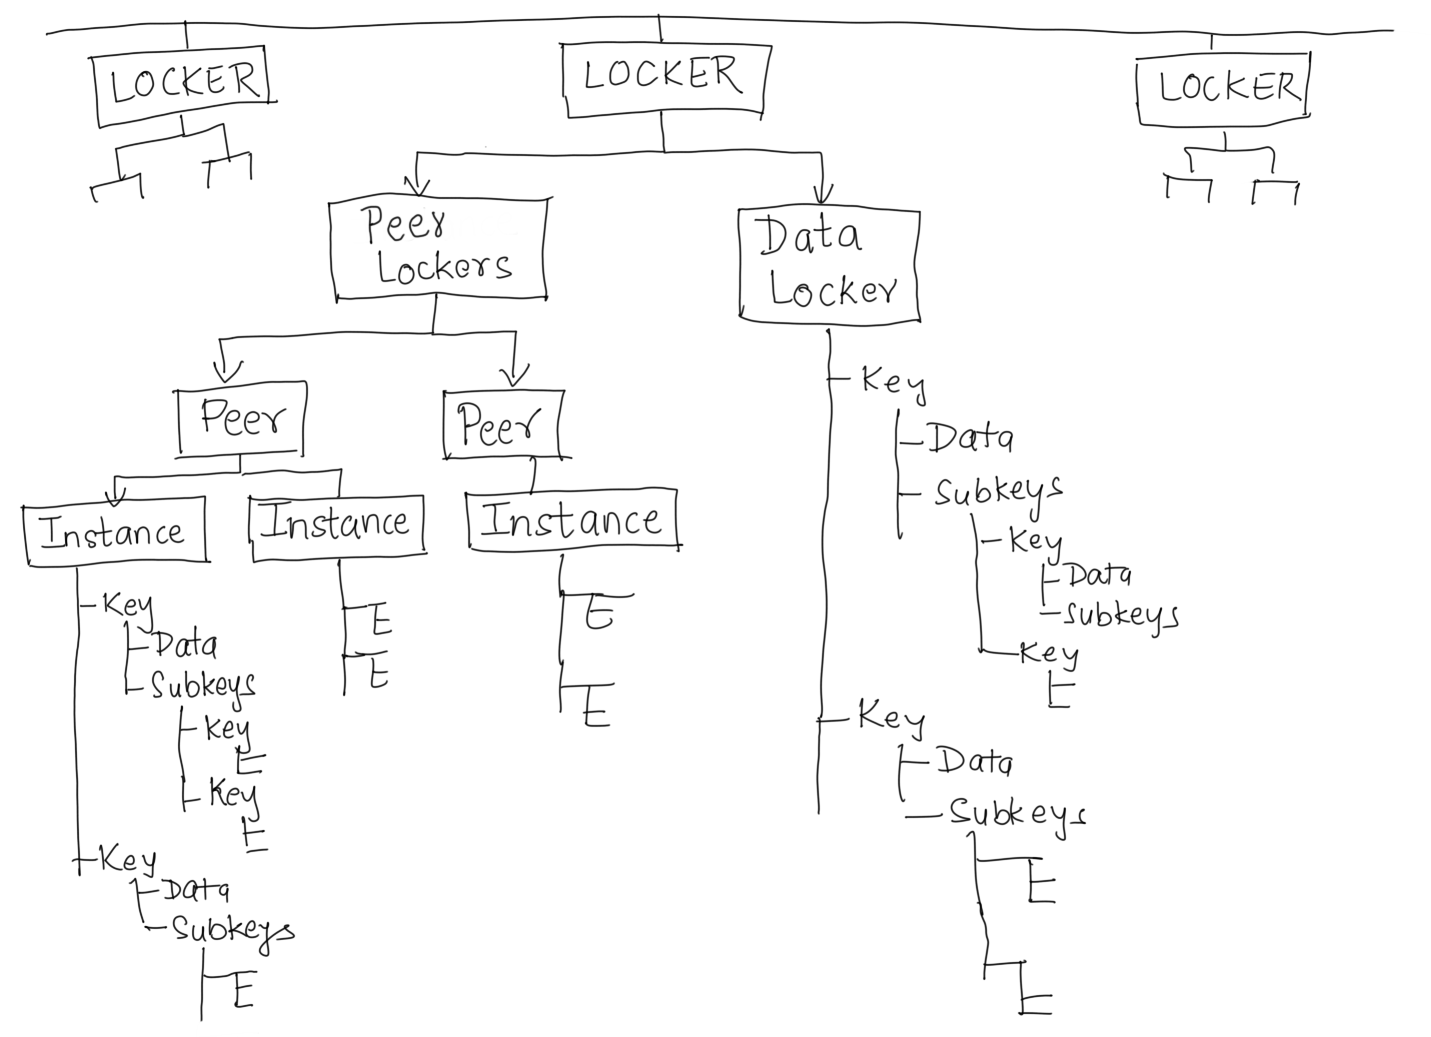 LOCKER
LOCKER
LOCKER
Peer
Lockers
Data
Locker
Peer
Peer
Instance
Instance
Instance
Key
Data
Subkeys
Key
Key
Key
Data
Subkeys
Key
Data
Subkeys
Key
Data
Subkeys
Key
Key
Data
Subkeys